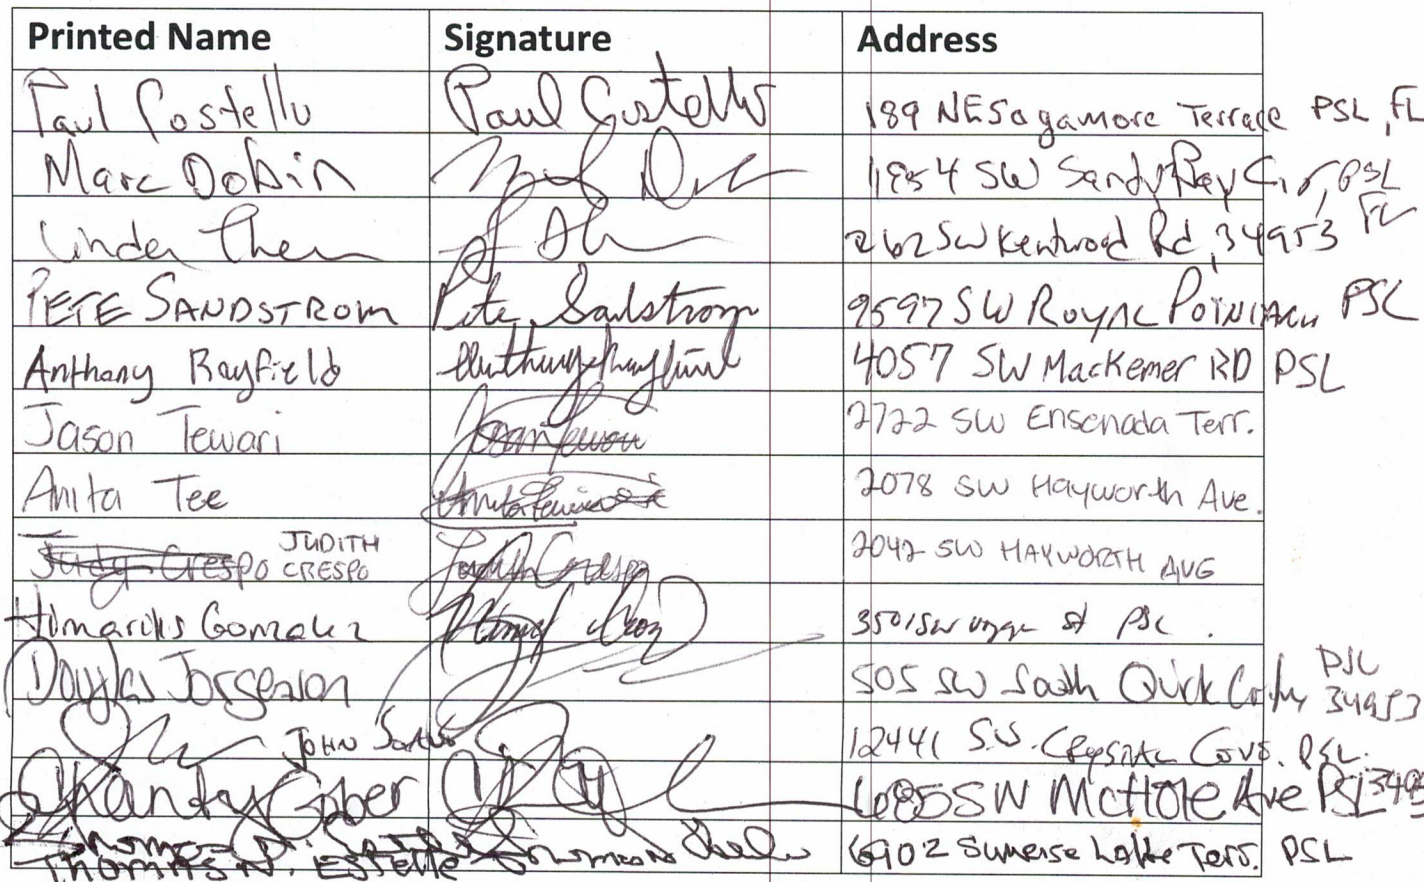 Printed Name Signature Address
Paul Costello Paul Costello 189 NE Sagamore Terrace PSL, FL
Marc Dobin 1954 SW Sandy Bay Cir, PSL
262 SW Kentwood Rd, 34953 FL
PETE SANDSTROM Pete Sandstrom 9597 SW ROYAL POINCIANA PSL
Anthony Rayfield Anthony Rayfield 4057 SW Mackemer RD PSL
Jason Tewari Jason Tewari 2722 SW Ensenada Terr.
Anita Tee 2078 SW Hayworth Ave.
Judy Crespo JUDITH CRESPO Judith Crespo 2042 SW HAYWORTH AVE
Gonzalez 3501 SW St PSL.
Douglas Jorgenson 505 SW South Quick PSL 34953
JOHN 12441 S.W. Crystal Cove. PSL.
Gober SW McHole Ave PSL
Thomas N. Estelle Thomas 6902 Sunrise Lake Terr. PSL